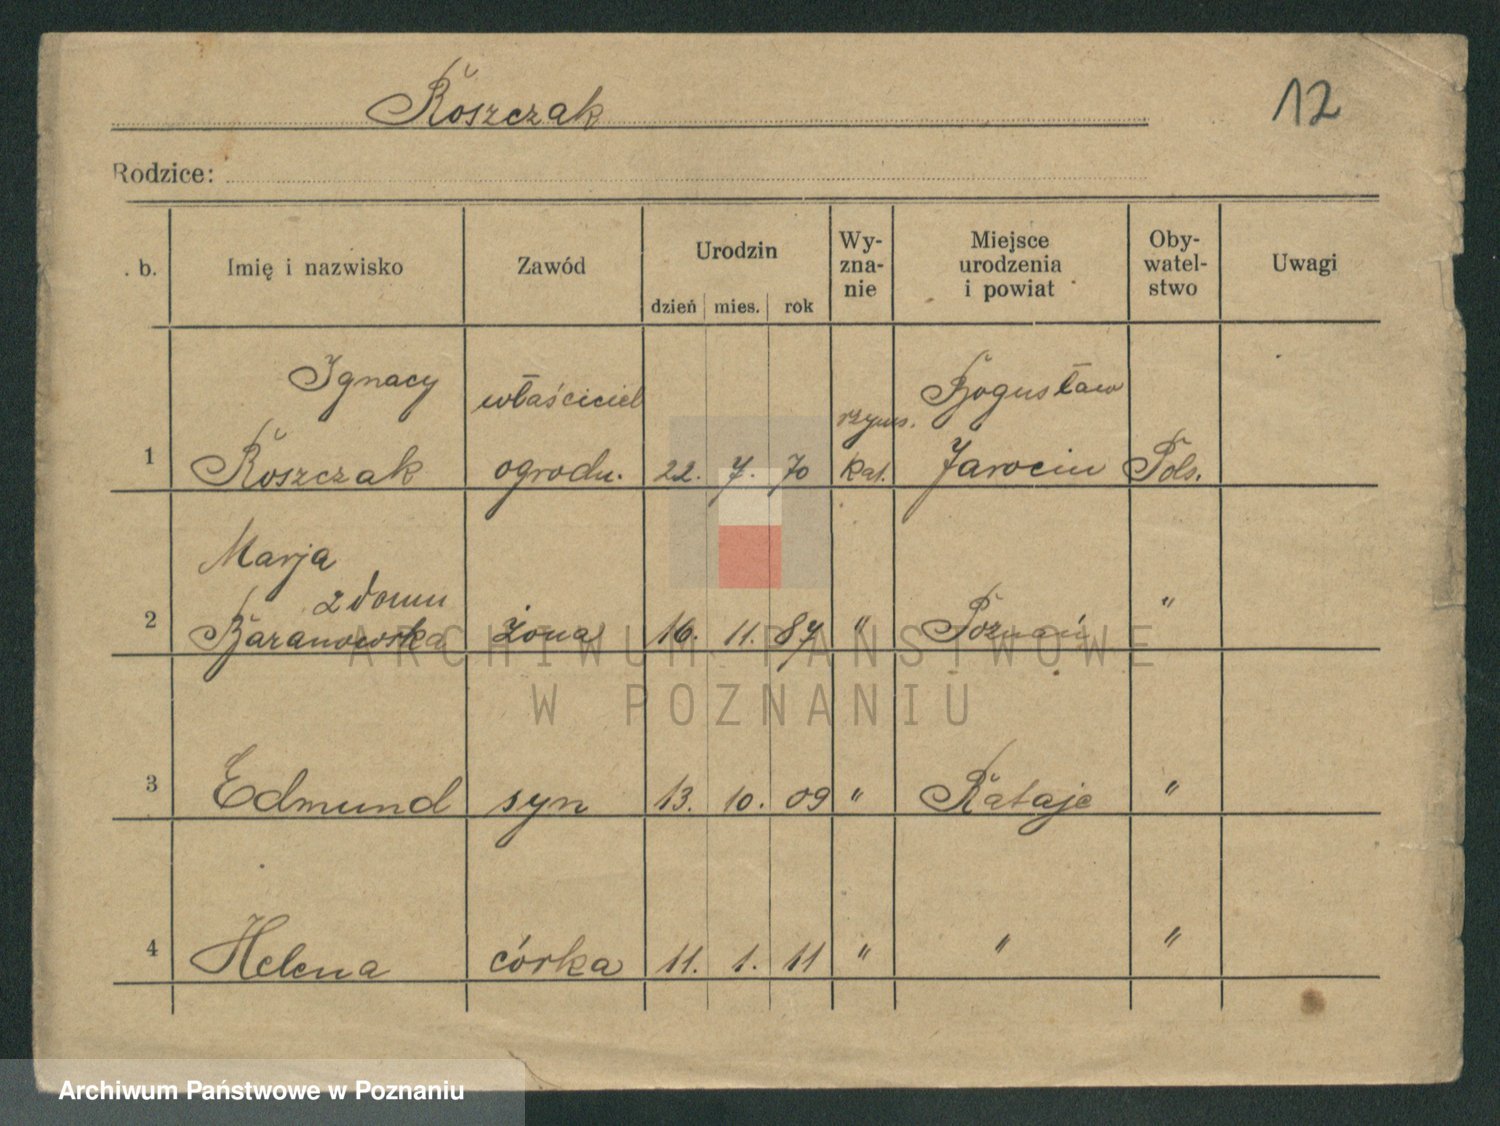 Roszczak
12
Rodzice:
. b. Imię i nazwisko Zawód Urodzin dzień mies. rok Wy-zna-nie Miejsce urodzenia i powiat Oby-watel-stwo Uwagi
Ignacy właściciel rzyms. Bogusław
1 Roszczak ogrodn. 22. 7. 70 kat. Jarocin Pols.
Marja
z domu
2 Baranowska żona 16. 11. 87 " Poznań "
3 Edmund syn 13. 10. 09 " Rataje "
4 Helena córka 11. 1. 11 " " "
ARCHIWUM PAŃSTWOWE
W POZNANIU
Archiwum Państwowe w Poznaniu